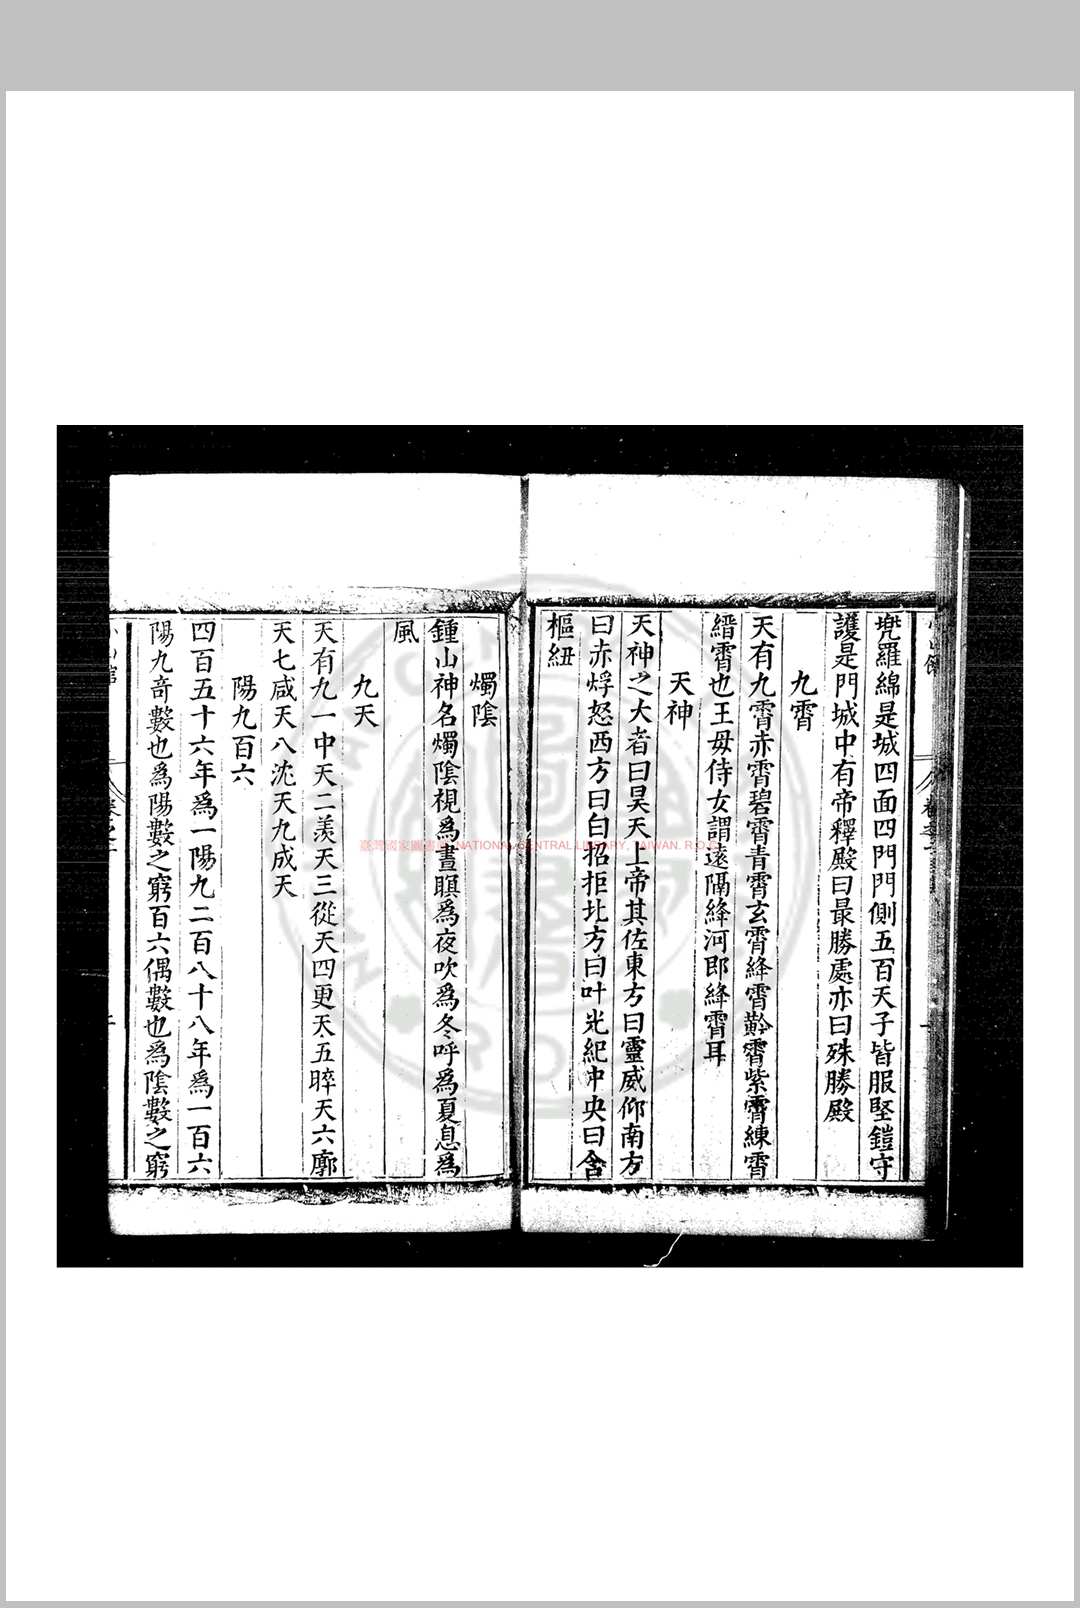 兠羅綿是城四面四門門側五百天子皆服堅鎧守
護是門城中有帝釋殿曰最勝處亦曰殊勝殿
九霄
天有九霄赤霄碧霄青霄玄霄絳霄黅霄紫霄練霄
縉霄也王母侍女謂遠隔絳河即絳霄耳
天神
天神之大者曰昊天上帝其佐東方曰靈威仰南方
曰赤熛怒西方曰白招拒北方曰叶光紀中央曰含
樞紐
燭陰
鍾山神名燭陰視為晝瞑為夜吹為冬呼為夏息為
風
九天
天有九一中天二羨天三從天四更天五睟天六廓
天七咸天八沈天九成天
陽九百六
四百五十六年為一陽九二百八十八年為一百六
陽九奇數也為陽數之窮百六偶數也為陰數之窮
臺灣國家圖書館 NATIONAL CENTRAL LIBRARY, TAIWAN, R.O.C